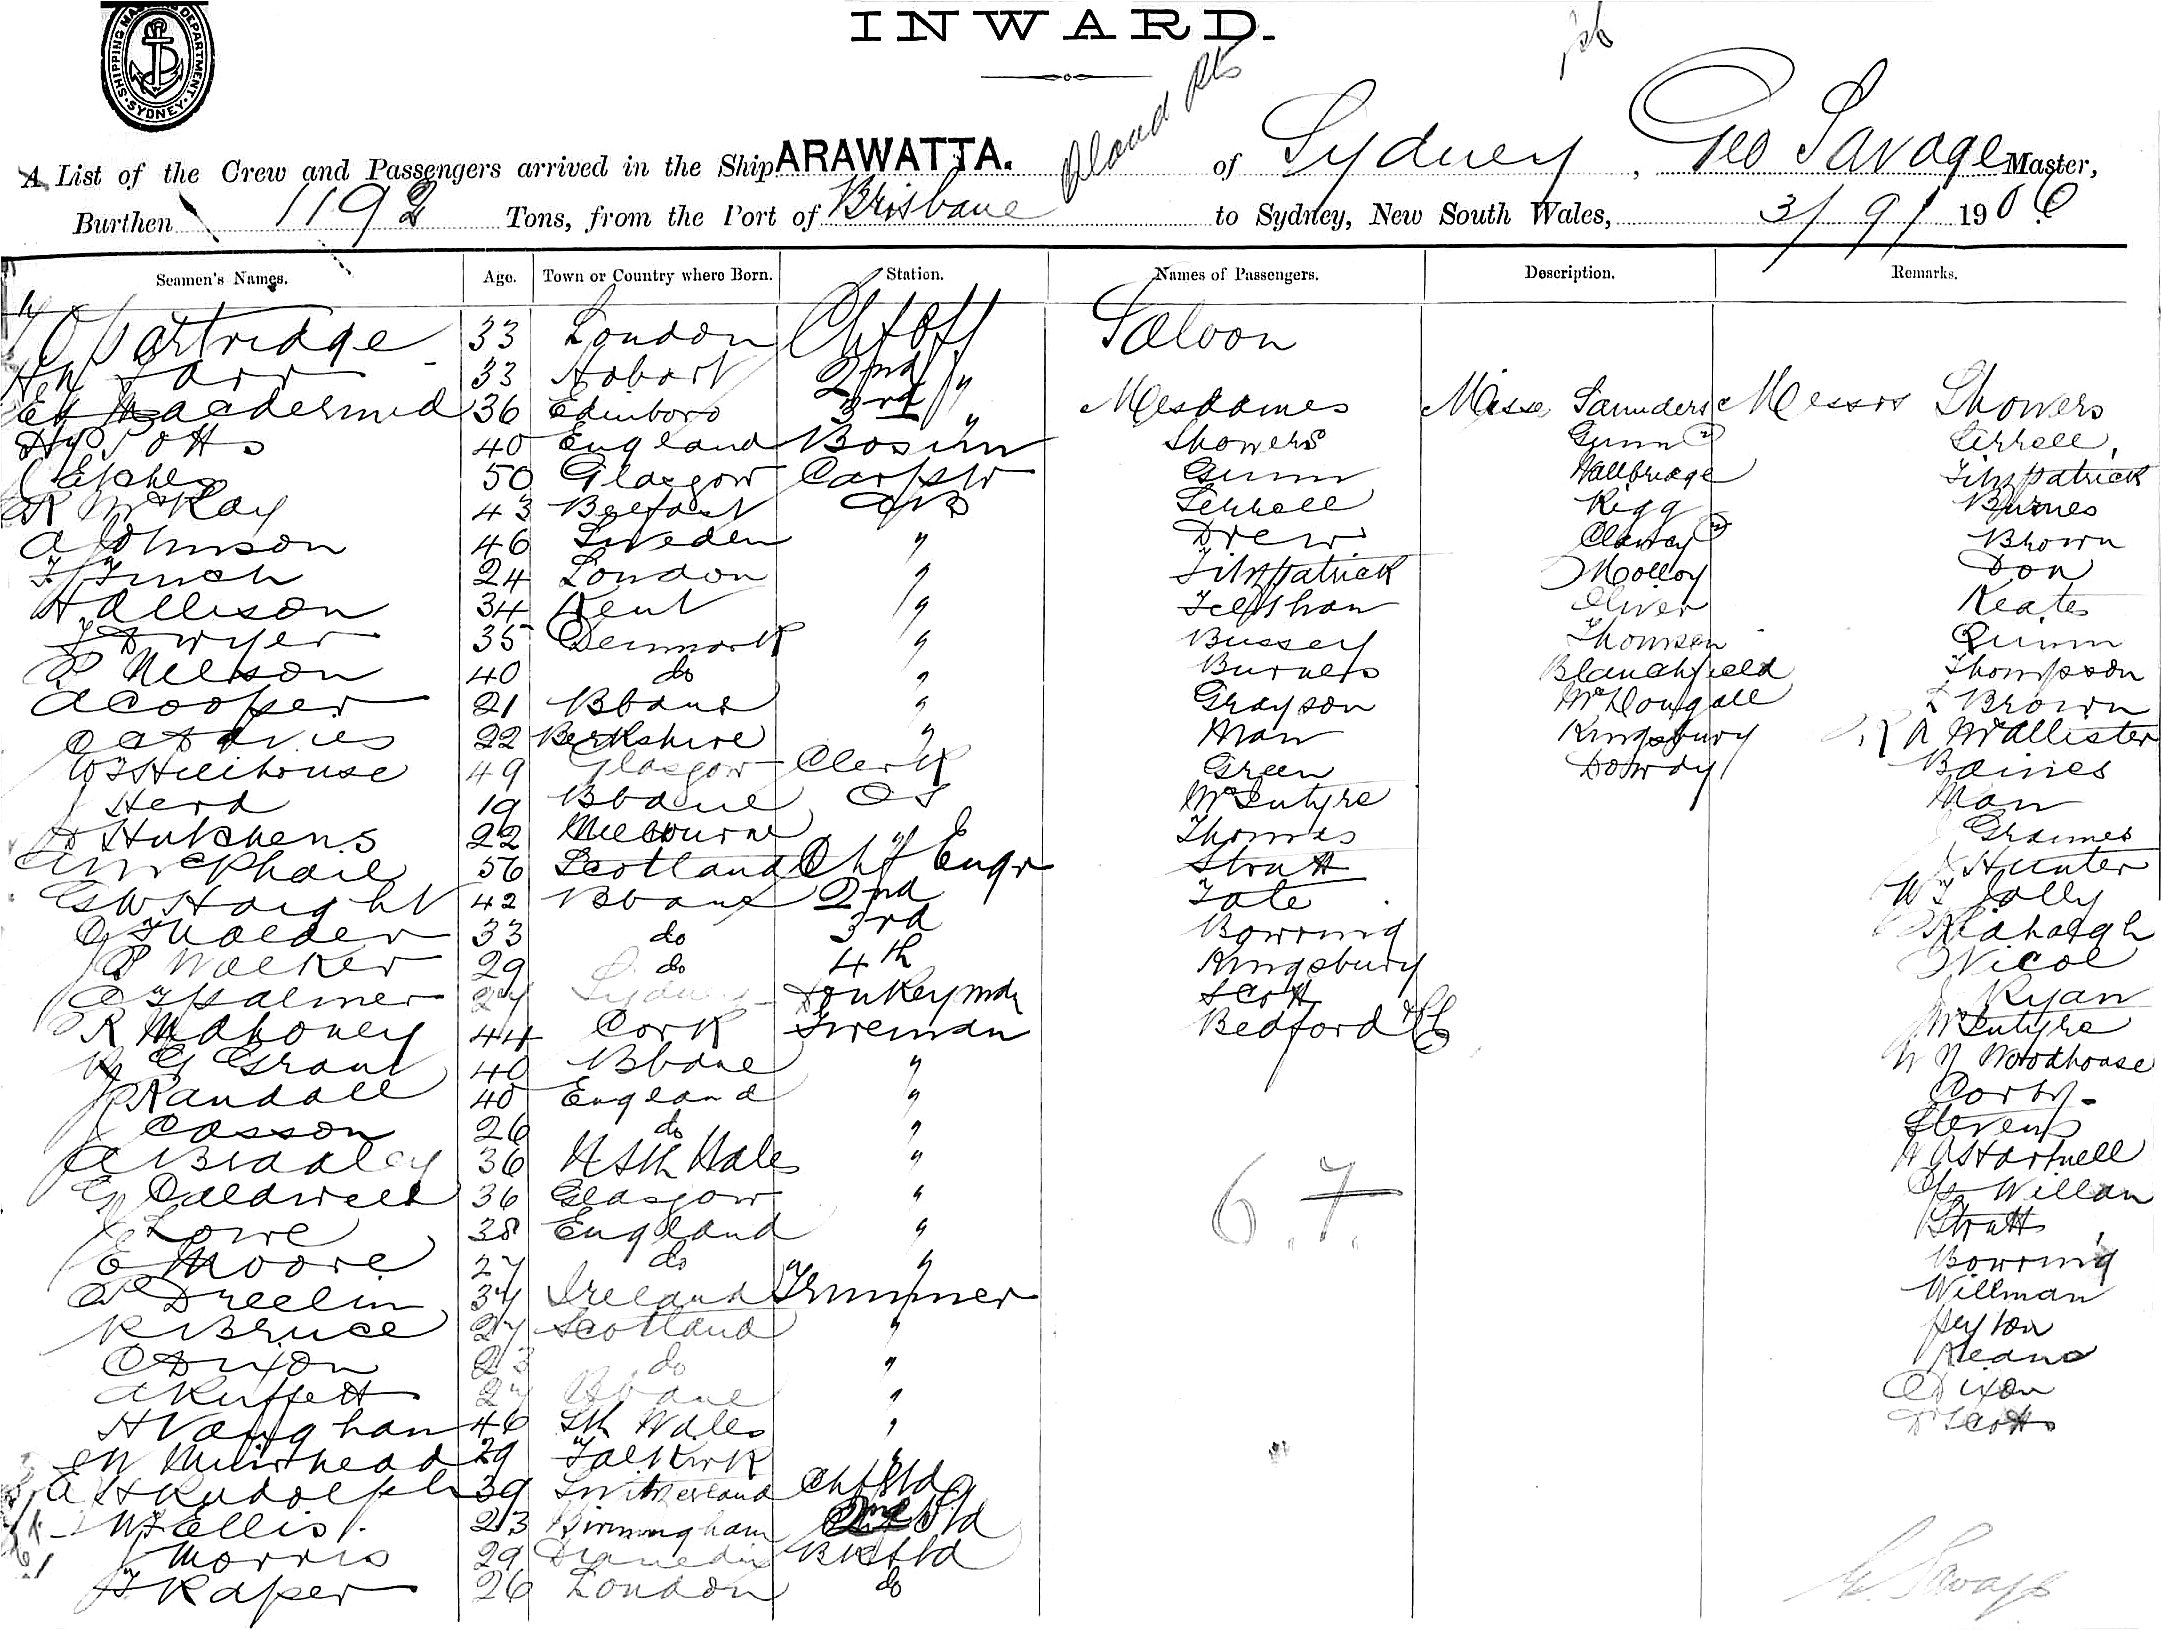 SHIPPING MASTERS DEPARTMENT. SYDNEY.
INWARD.
A List of the Crew and Passengers arrived in the Ship ARAWATTA. of Sydney, Geo Savage Master,
Burthen 1192 Tons, from the Port of Brisbane to Sydney, New South Wales, 3/9/1906
Seamen's Names. Age. Town or Country where Born. Station. Names of Passengers. Description. Remarks.
Partridge 33 London Ch Off Saloon
33 Hobart 2nd "
Macdermid 36 Edinboro 3rd " Mesdames Misses Saunders Messrs Showers
Hy Potts 40 England Bosun Showers Gunn 2 Lirrell
50 Glasgow Carptr Gunn Wallbridge Fitzpatrick
R McKay 43 Belfast AB Rigg Burnes
A Johnson 46 Sweden " Drew Brown
F Finch 24 London " Fitzpatrick Molloy Don
H Allison 34 Kent " Oliver Keates
J Dwyer 35 Denmark " Bussey Thomson Quinn
P Nelson 40 do " Burnets Blanchfield Thompson
A Cooper 21 Bbane " Grayson McDougall Brown
22 Berkshire " Man Kingsbury McAllister
W Hillhouse 49 Glasgow Clerk Green Dowdy Baines
J Herd 19 Bbane OS McIntyre Man
Hutchens 22 Melbourne " Thomas Graimes
A McPhail 56 Scotland Chf Engr Strutt Hunter
G W Haight 42 Bbane 2nd Tate W J Jolly
33 do 3rd Bowring
P Walker 29 do 4th Kingsbury Nicol
Palmer 27 Sydney Donkeyman Scott Ryan
R Mahoney 44 Cork Fireman Bedford McIntyre
G Grant 40 Bbane " Woodhouse
J Randall 40 England " Corby
J Casson 26 do " Stevens
A Bradley 36 Nth Wales " Hartnell
Caldwell 36 Glasgow " Willan
J Lowe 38 England " Strutt
E Moore 27 do " Bowring
34 Ireland Trimmer Willman
R Bruce 27 Scotland " Peyton
C Dixon 23 do " Keane
27 Bbane " C Dixon
H Vaughan 46 Sth Wales " D Scott
W Muirhead 29 Falkirk "
A H Rudolph 39 Switzerland Chf Std
W Ellis 23 Birmingham 2nd Std
J Morris 29 Bk Std
F Raper 26 London do
67
G. Savage